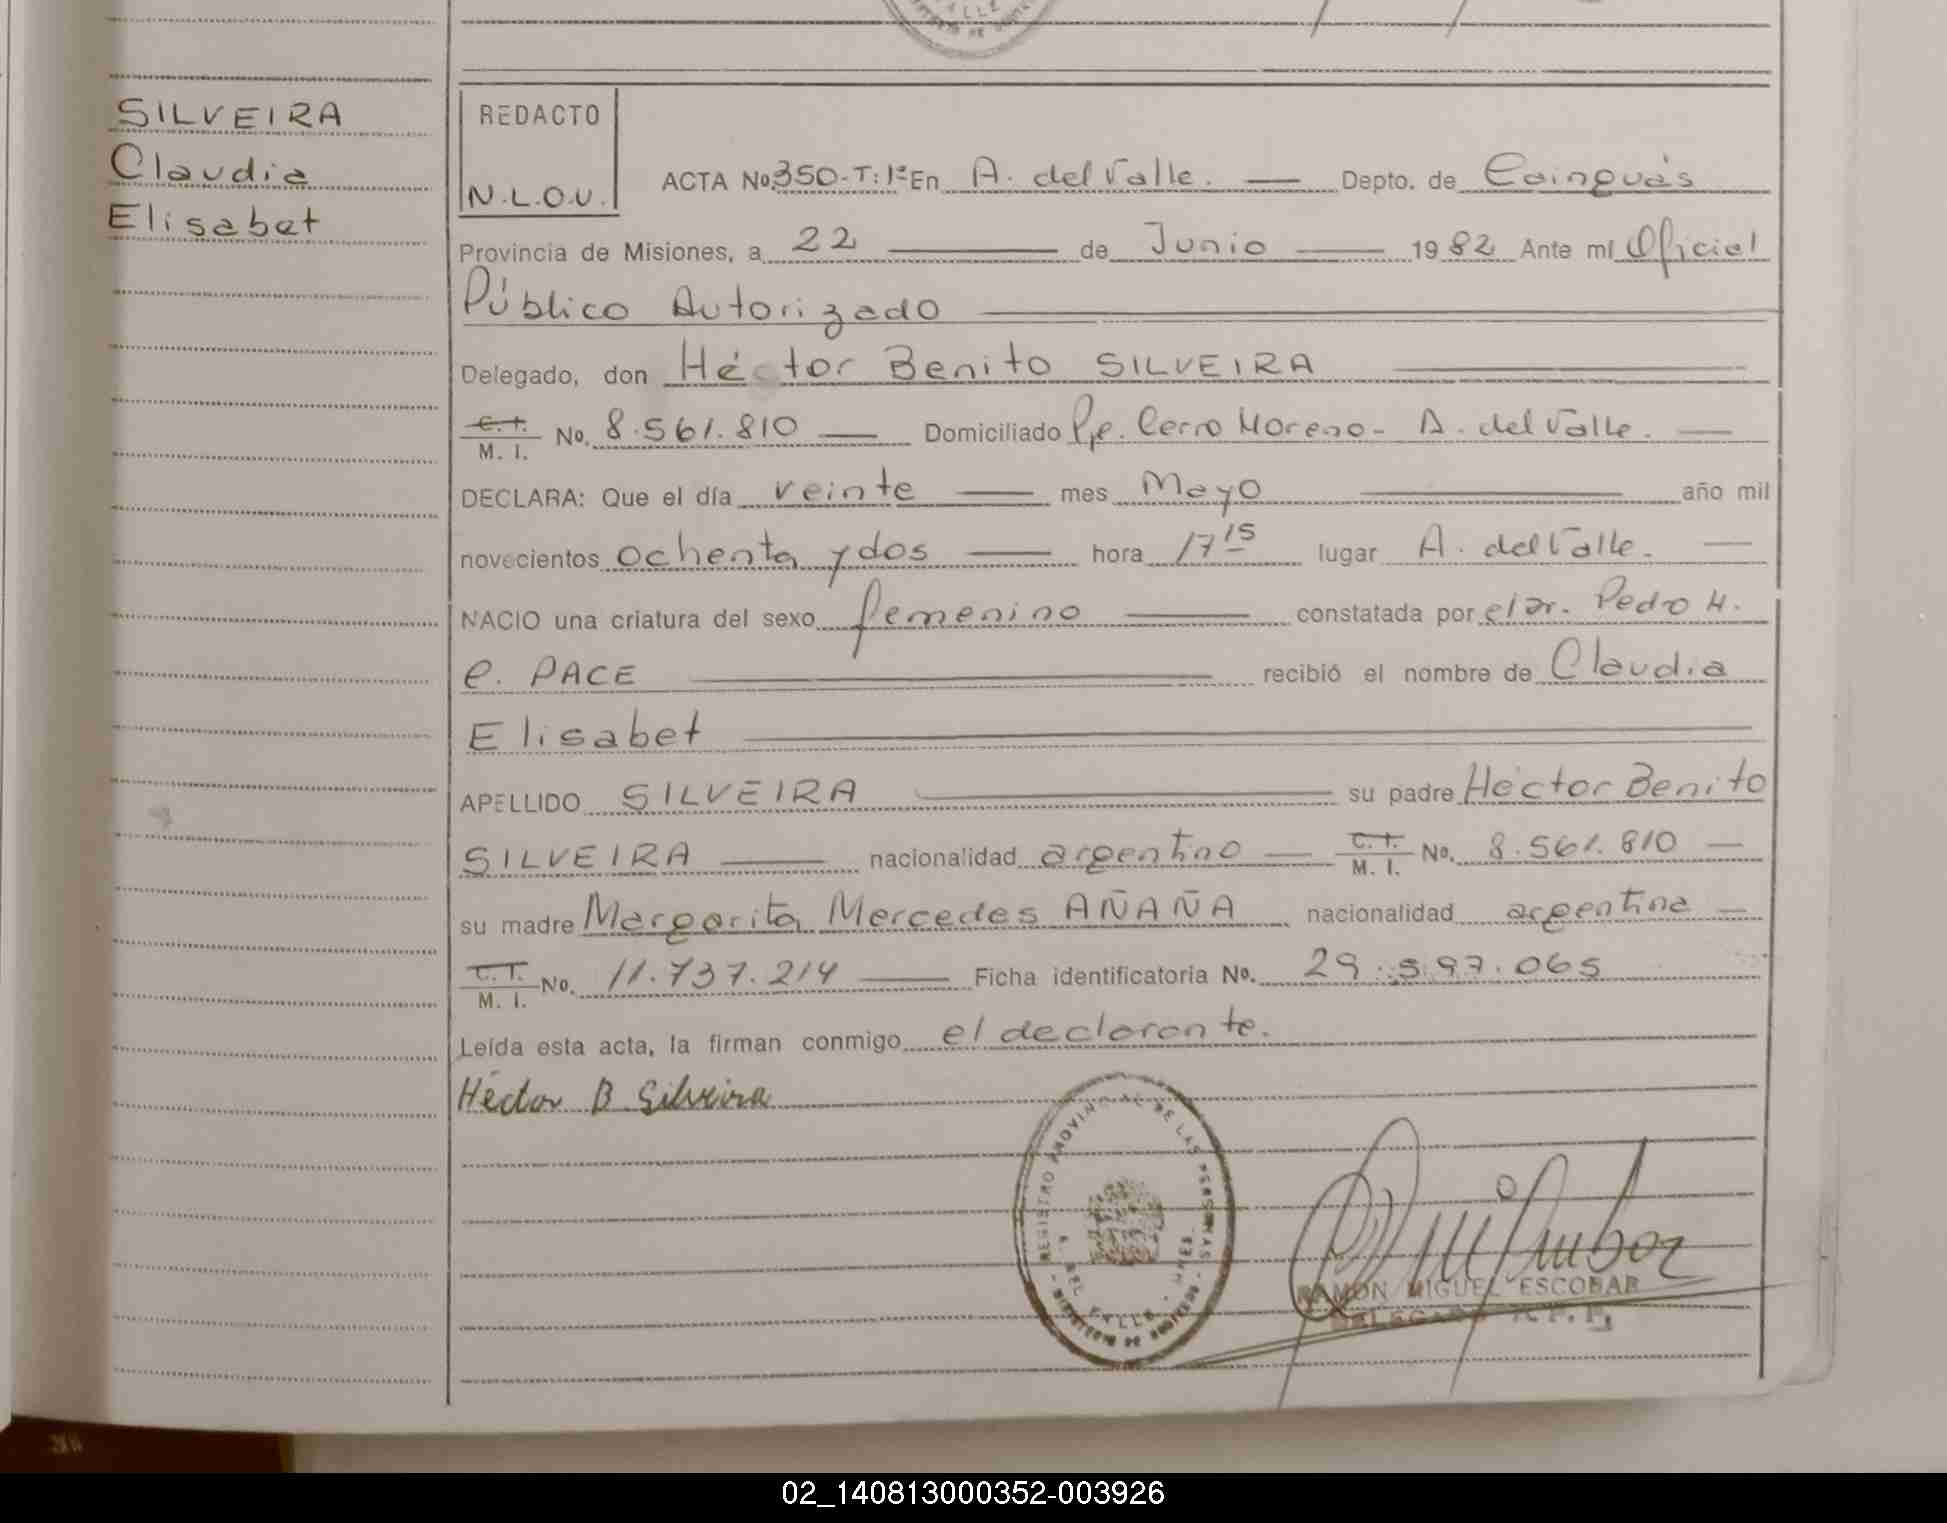 SILVEIRA
Claudia
Elisabet
REDACTO
N.L.O.V.
ACTA No. 350-T:1º En A. del Valle. Depto. de Cainguás
Provincia de Misiones, a 22 de Junio 1982 Ante mí Oficial
Público Autorizado
Delegado, don Héctor Benito SILVEIRA
C.I. M. I. No. 8.561.810 Domiciliado Pje. Cerro Moreno - A. del Valle.
DECLARA: Que el día veinte mes Mayo año mil
novecientos ochenta y dos hora 17 15 lugar A. del Valle.
NACIO una criatura del sexo femenino constatada por el Dr. Pedro H.
e. PACE recibió el nombre de Claudia
Elisabet
APELLIDO SILVEIRA su padre Héctor Benito
SILVEIRA nacionalidad argentino C.I. M. I. No. 8.561.810
su madre Margarita Mercedes AÑAÑA nacionalidad argentina
C.I. M. I. No. 11.737.214 Ficha identificatoria No. 29.597.065
Leída esta acta, la firman conmigo el declarante.
Héctor B Silveira
REGISTRO PROVINCIAL DE LAS PERSONAS
A. DEL VALLE - MNES.
RAMON MIGUEL ESCOBAR
DELEGADO R. P. P.
02_140813000352-003926